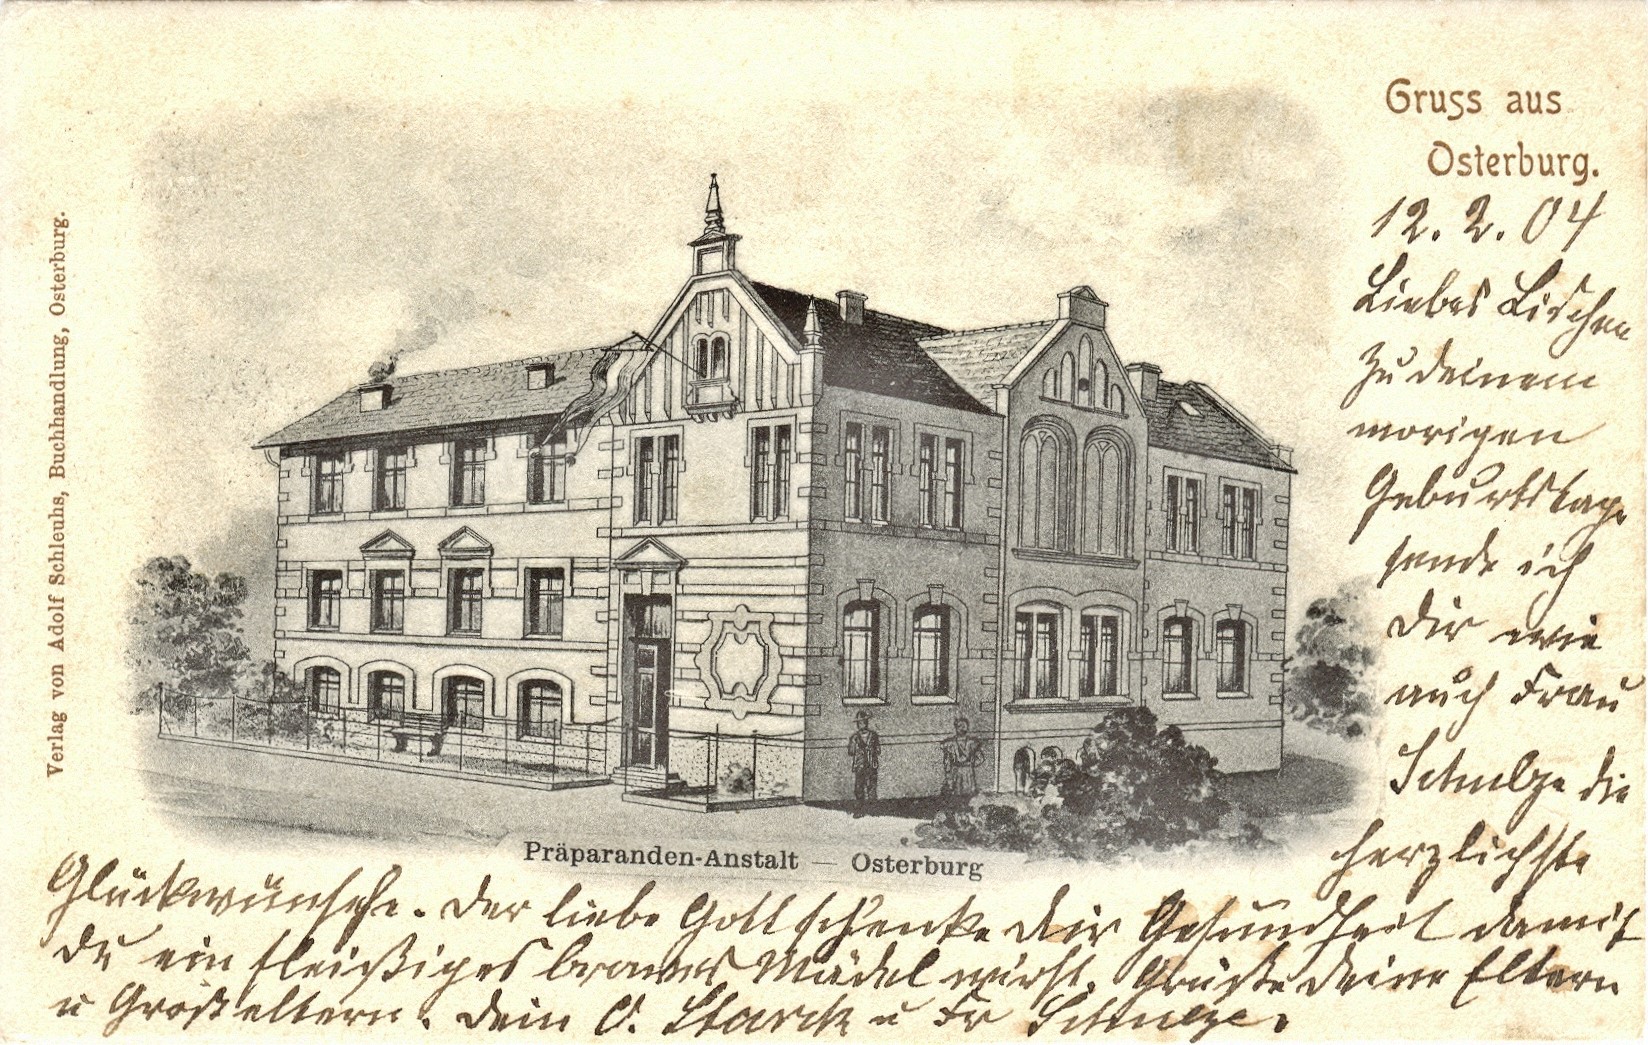 Gruss aus
Osterburg.
12. 2. 04
Liebes Lischen
Zu deinem
morigen
Geburtstage
sende ich
Dir wie
auch Frau
Schulze die
herzlichste
Glückwünsche. Der liebe Gott schenke dir Gesundheit damit
du ein fleißiges braves Mädel wirst. Grüße deine Eltern
u Großeltern. Dein O. Starck u Fr Schulze.
Präparanden-Anstalt — Osterburg
Verlag von Adolf Schleuhs, Buchhandlung, Osterburg.